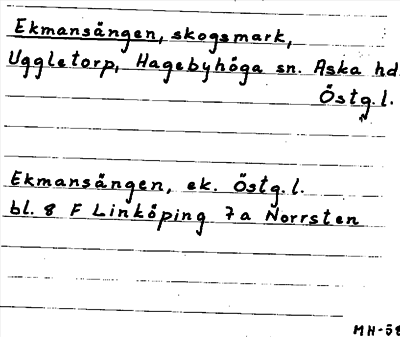 Ekmansängen, skogsmark,
Uggletorp, Hagebyhöga sn. Aska hd.
Östg.l.
Ekmansängen, ek. Östg.l.
bl. 8 F Linköping 7a Norrsten
MH-58